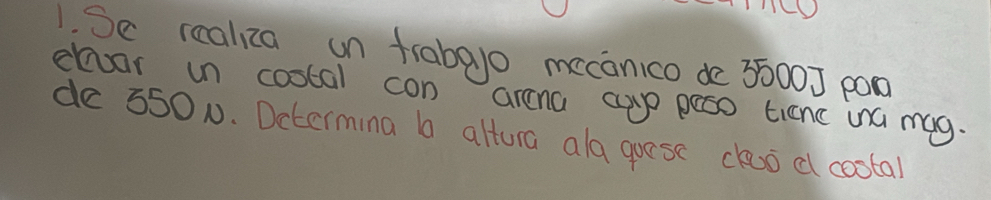 1. Se realiza un trabajo mecánico de 3500J para
elevar un costal con arena cuyo peso tiene una mag.
de 350 N. Determina la altura ala quese elevó el costal